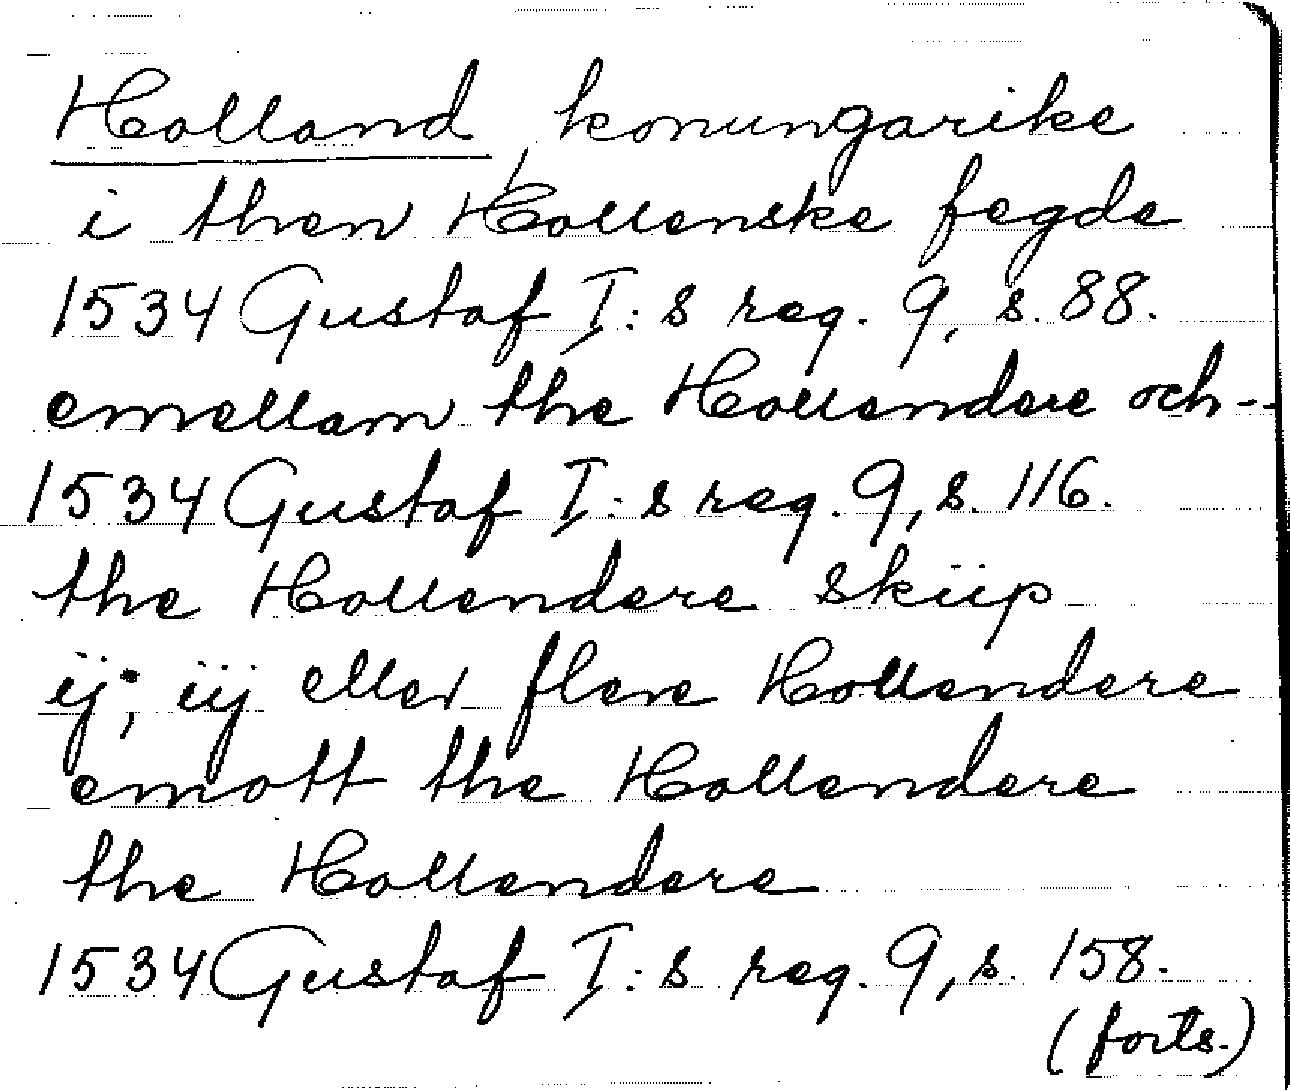 Holland, konungarike
i then Hollenske fegde
1534 Gustaf I:s reg. 9, s. 88.
emellam the Hollendere och--
1534 Gustaf I:s reg. 9, s. 116.
the Hollendere skiip
ij, iij eller flere Hollendere
emott the Hollendere
the Hollendere
1534 Gustaf I:s reg. 9, s. 158.
(forts.)